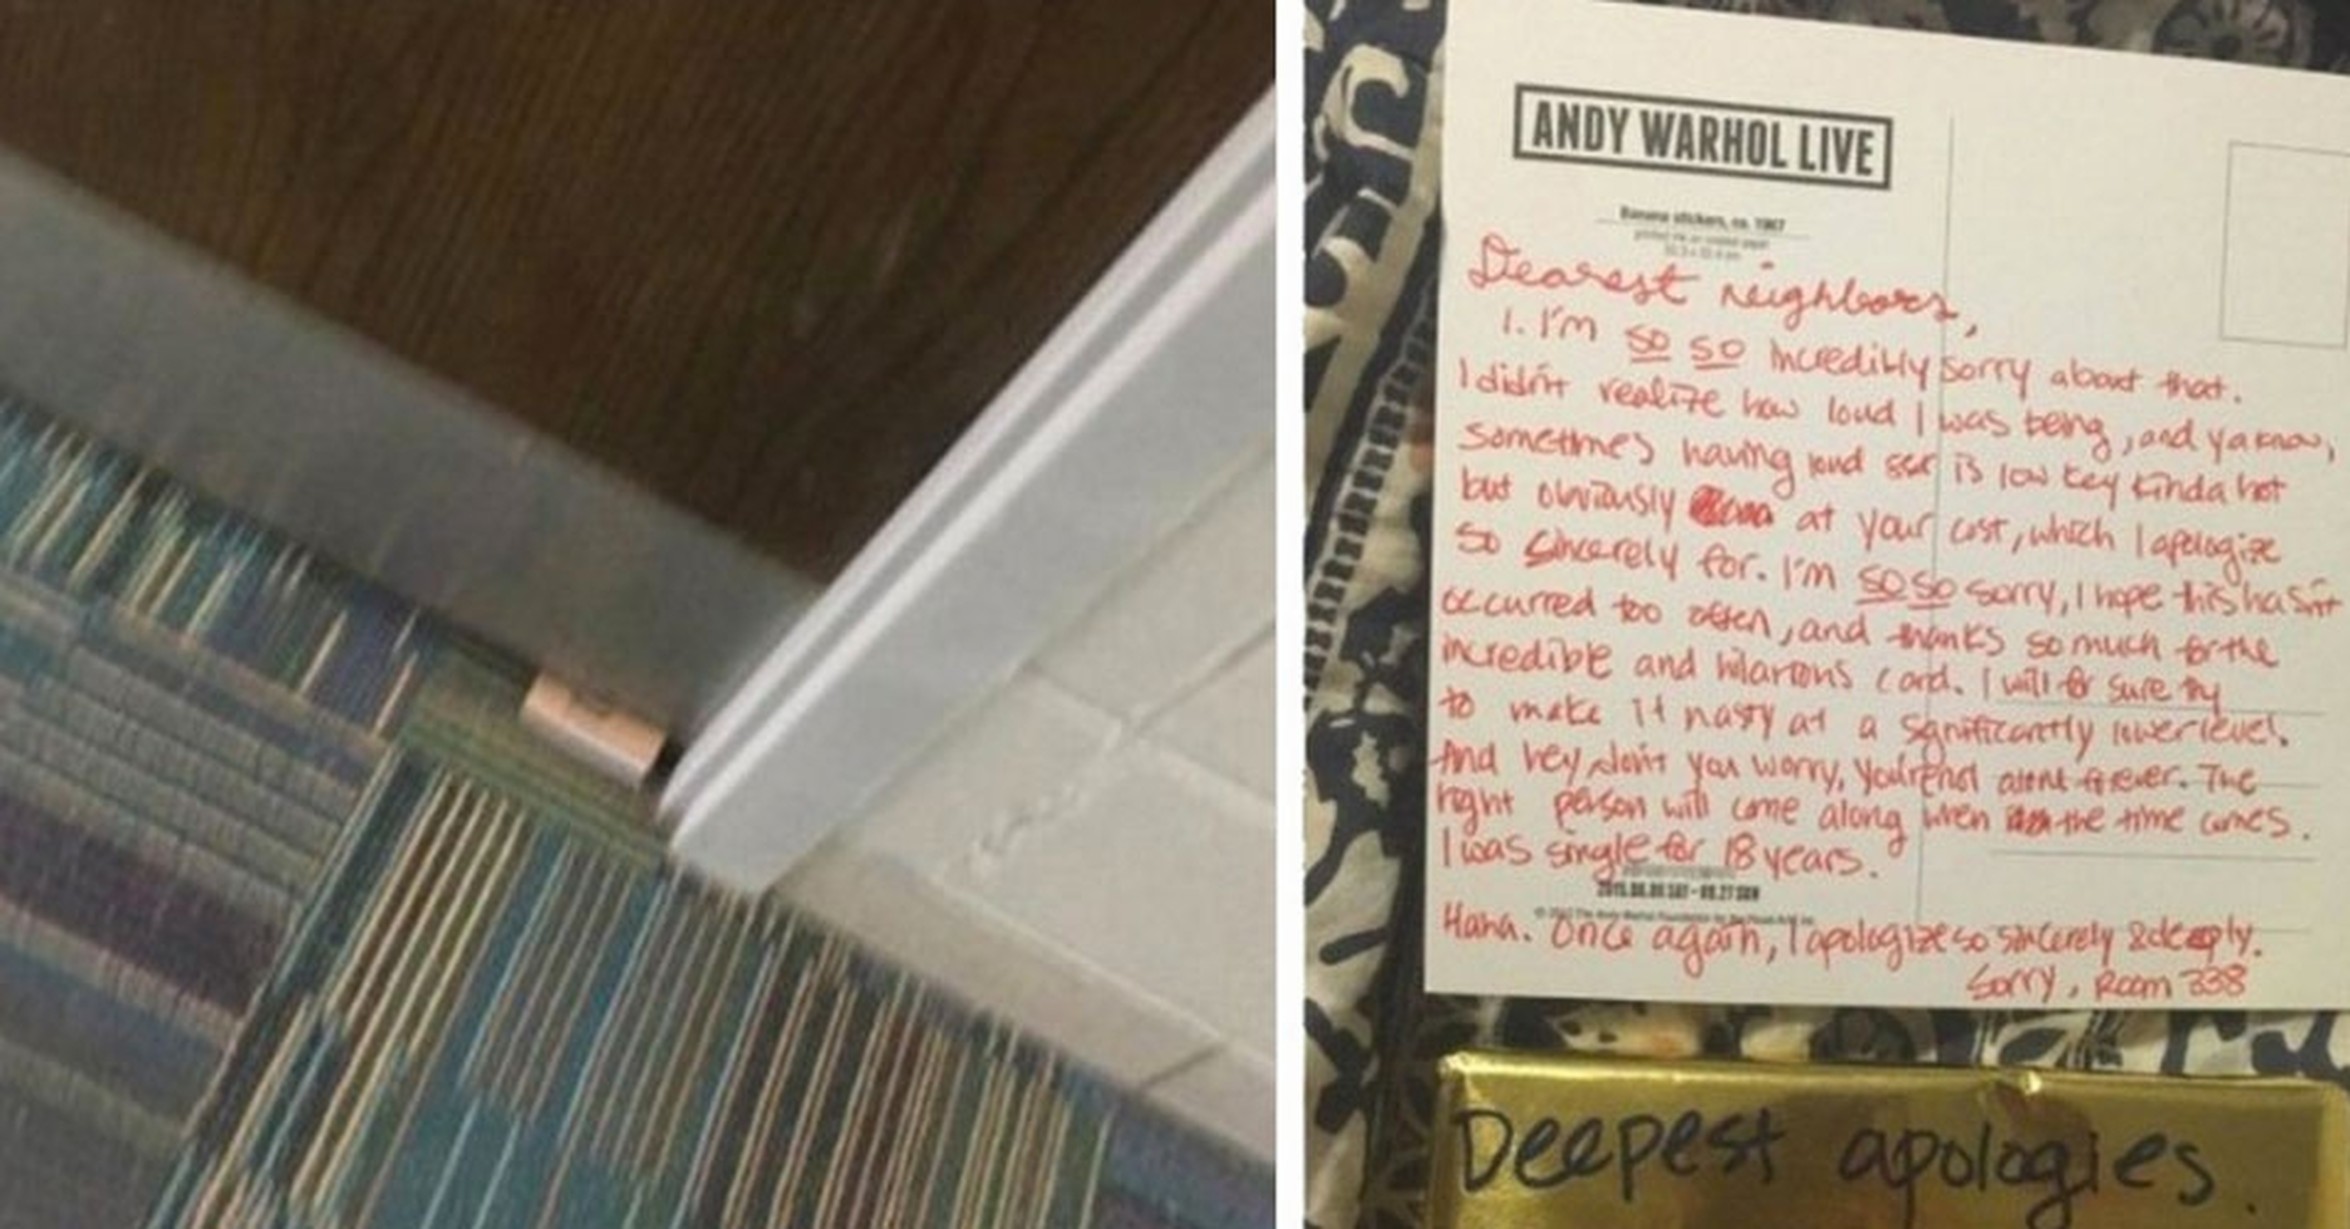 ANDY WARHOL LIVE
Banana stickers, ca. 1967
Dearest neighbors,
1. I'm so so incredibly sorry about that.
I didn't realize how loud I was being, and ya know,
sometimes having loud sex is low key kinda hot
but obviously at your cost, which I apologize
so sincerely for. I'm so so sorry, I hope this hasn't
occurred too often, and thanks so much for the
incredible and hilarious card. I will for sure try
to make it nasty at a significantly lower level.
And hey, don't you worry, you're not alone forever. The
right person will come along when the time comes.
I was single for 18 years.
Haha. Once again, I apologize so sincerely & deeply.
Sorry, Room 338
Deepest apologies.